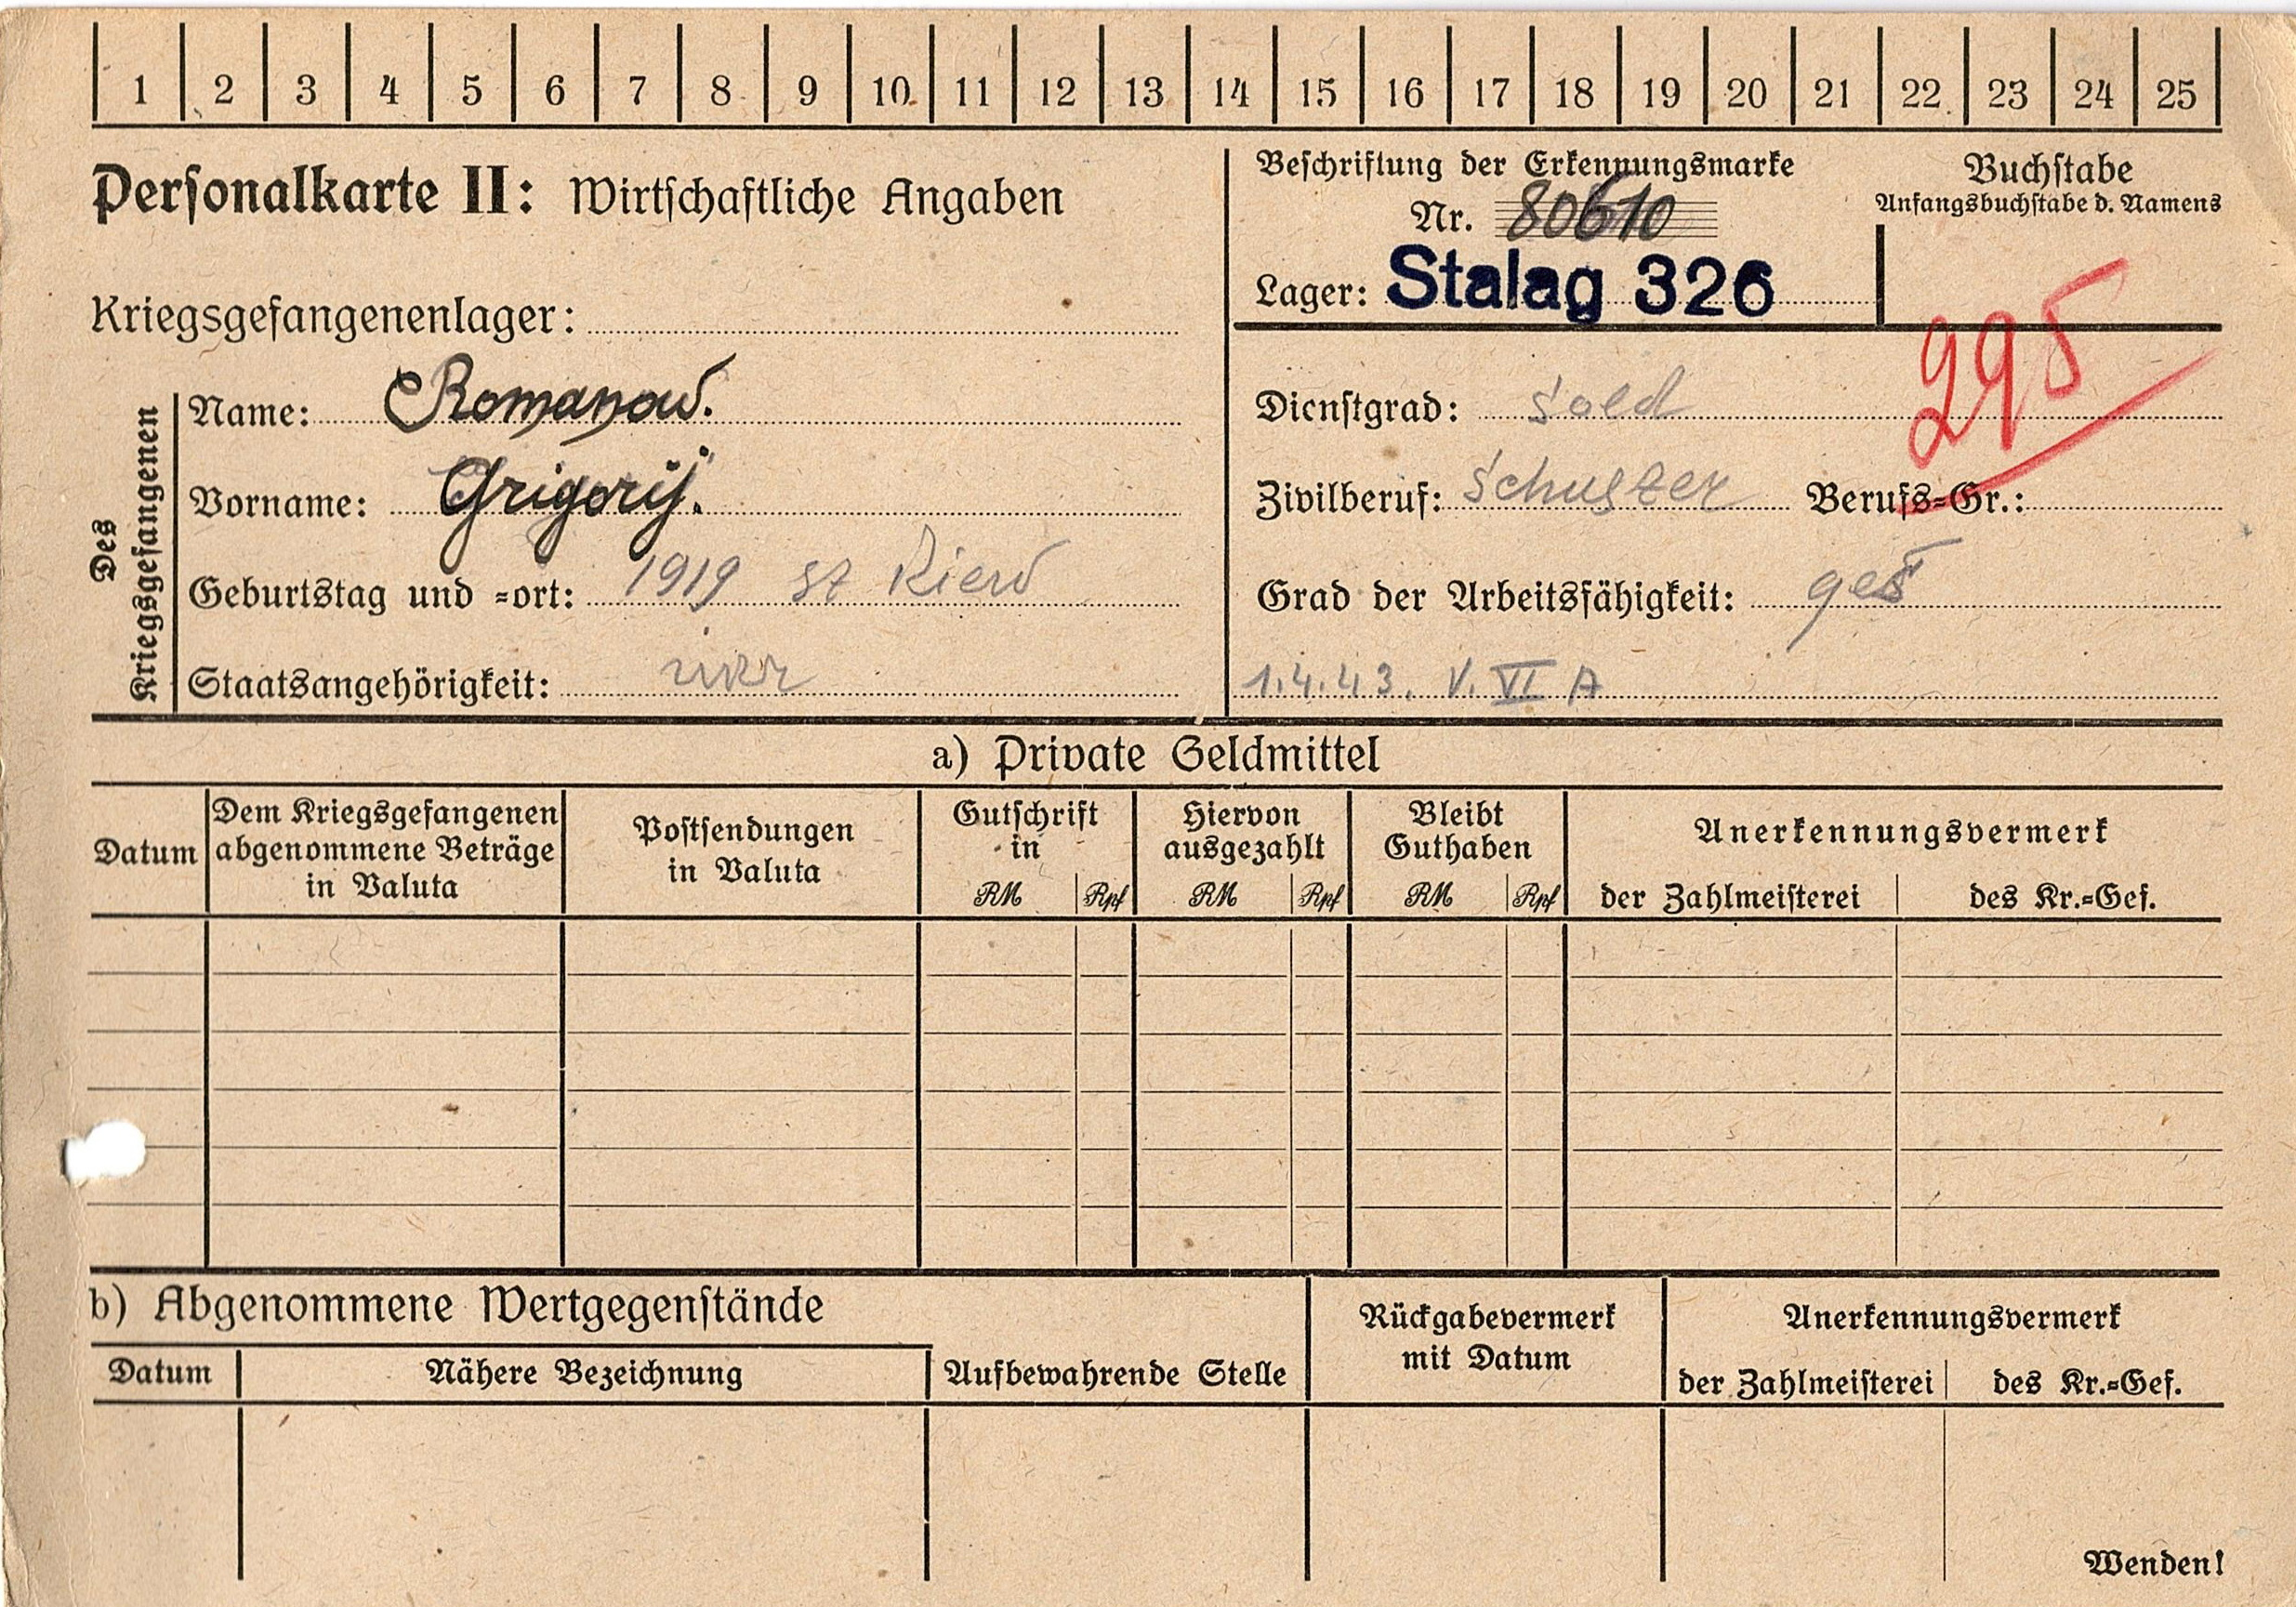 1 2 3 4 5 6 7 8 9 10 11 12 13 14 15 16 17 18 19 20 21 22 23 24 25
Personalkarte II: Wirtschaftliche Angaben
Kriegsgefangenenlager:
Des
Kriegsgefangenen
Name: Romanow.
Vorname: Grigorij.
Geburtstag und =ort: 1919 st Kiew
Staatsangehörigkeit: ukr
Beschriftung der Erkennungsmarke
Nr. 80610
Lager: Stalag 326
Buchstabe
Anfangsbuchstabe d. Namens
295
Dienstgrad: Sold
Zivilberuf: Schuster Berufs=Gr.:
Grad der Arbeitsfähigkeit: ges
1.4.43. V. VI A
a) Private Geldmittel
Datum
Dem Kriegsgefangenen
abgenommene Beträge
in Valuta
Postsendungen
in Valuta
Gutschrift
in
RM Rpf
Hiervon
ausgezahlt
RM Rpf
Bleibt
Guthaben
RM Rpf
Anerkennungsvermerk
der Zahlmeisterei des Kr.=Gef.
b) Abgenommene Wertgegenstände
Datum Nähere Bezeichnung Aufbewahrende Stelle
Rückgabevermerk
mit Datum
Anerkennungsvermerk
der Zahlmeisterei des Kr.=Gef.
Wenden!